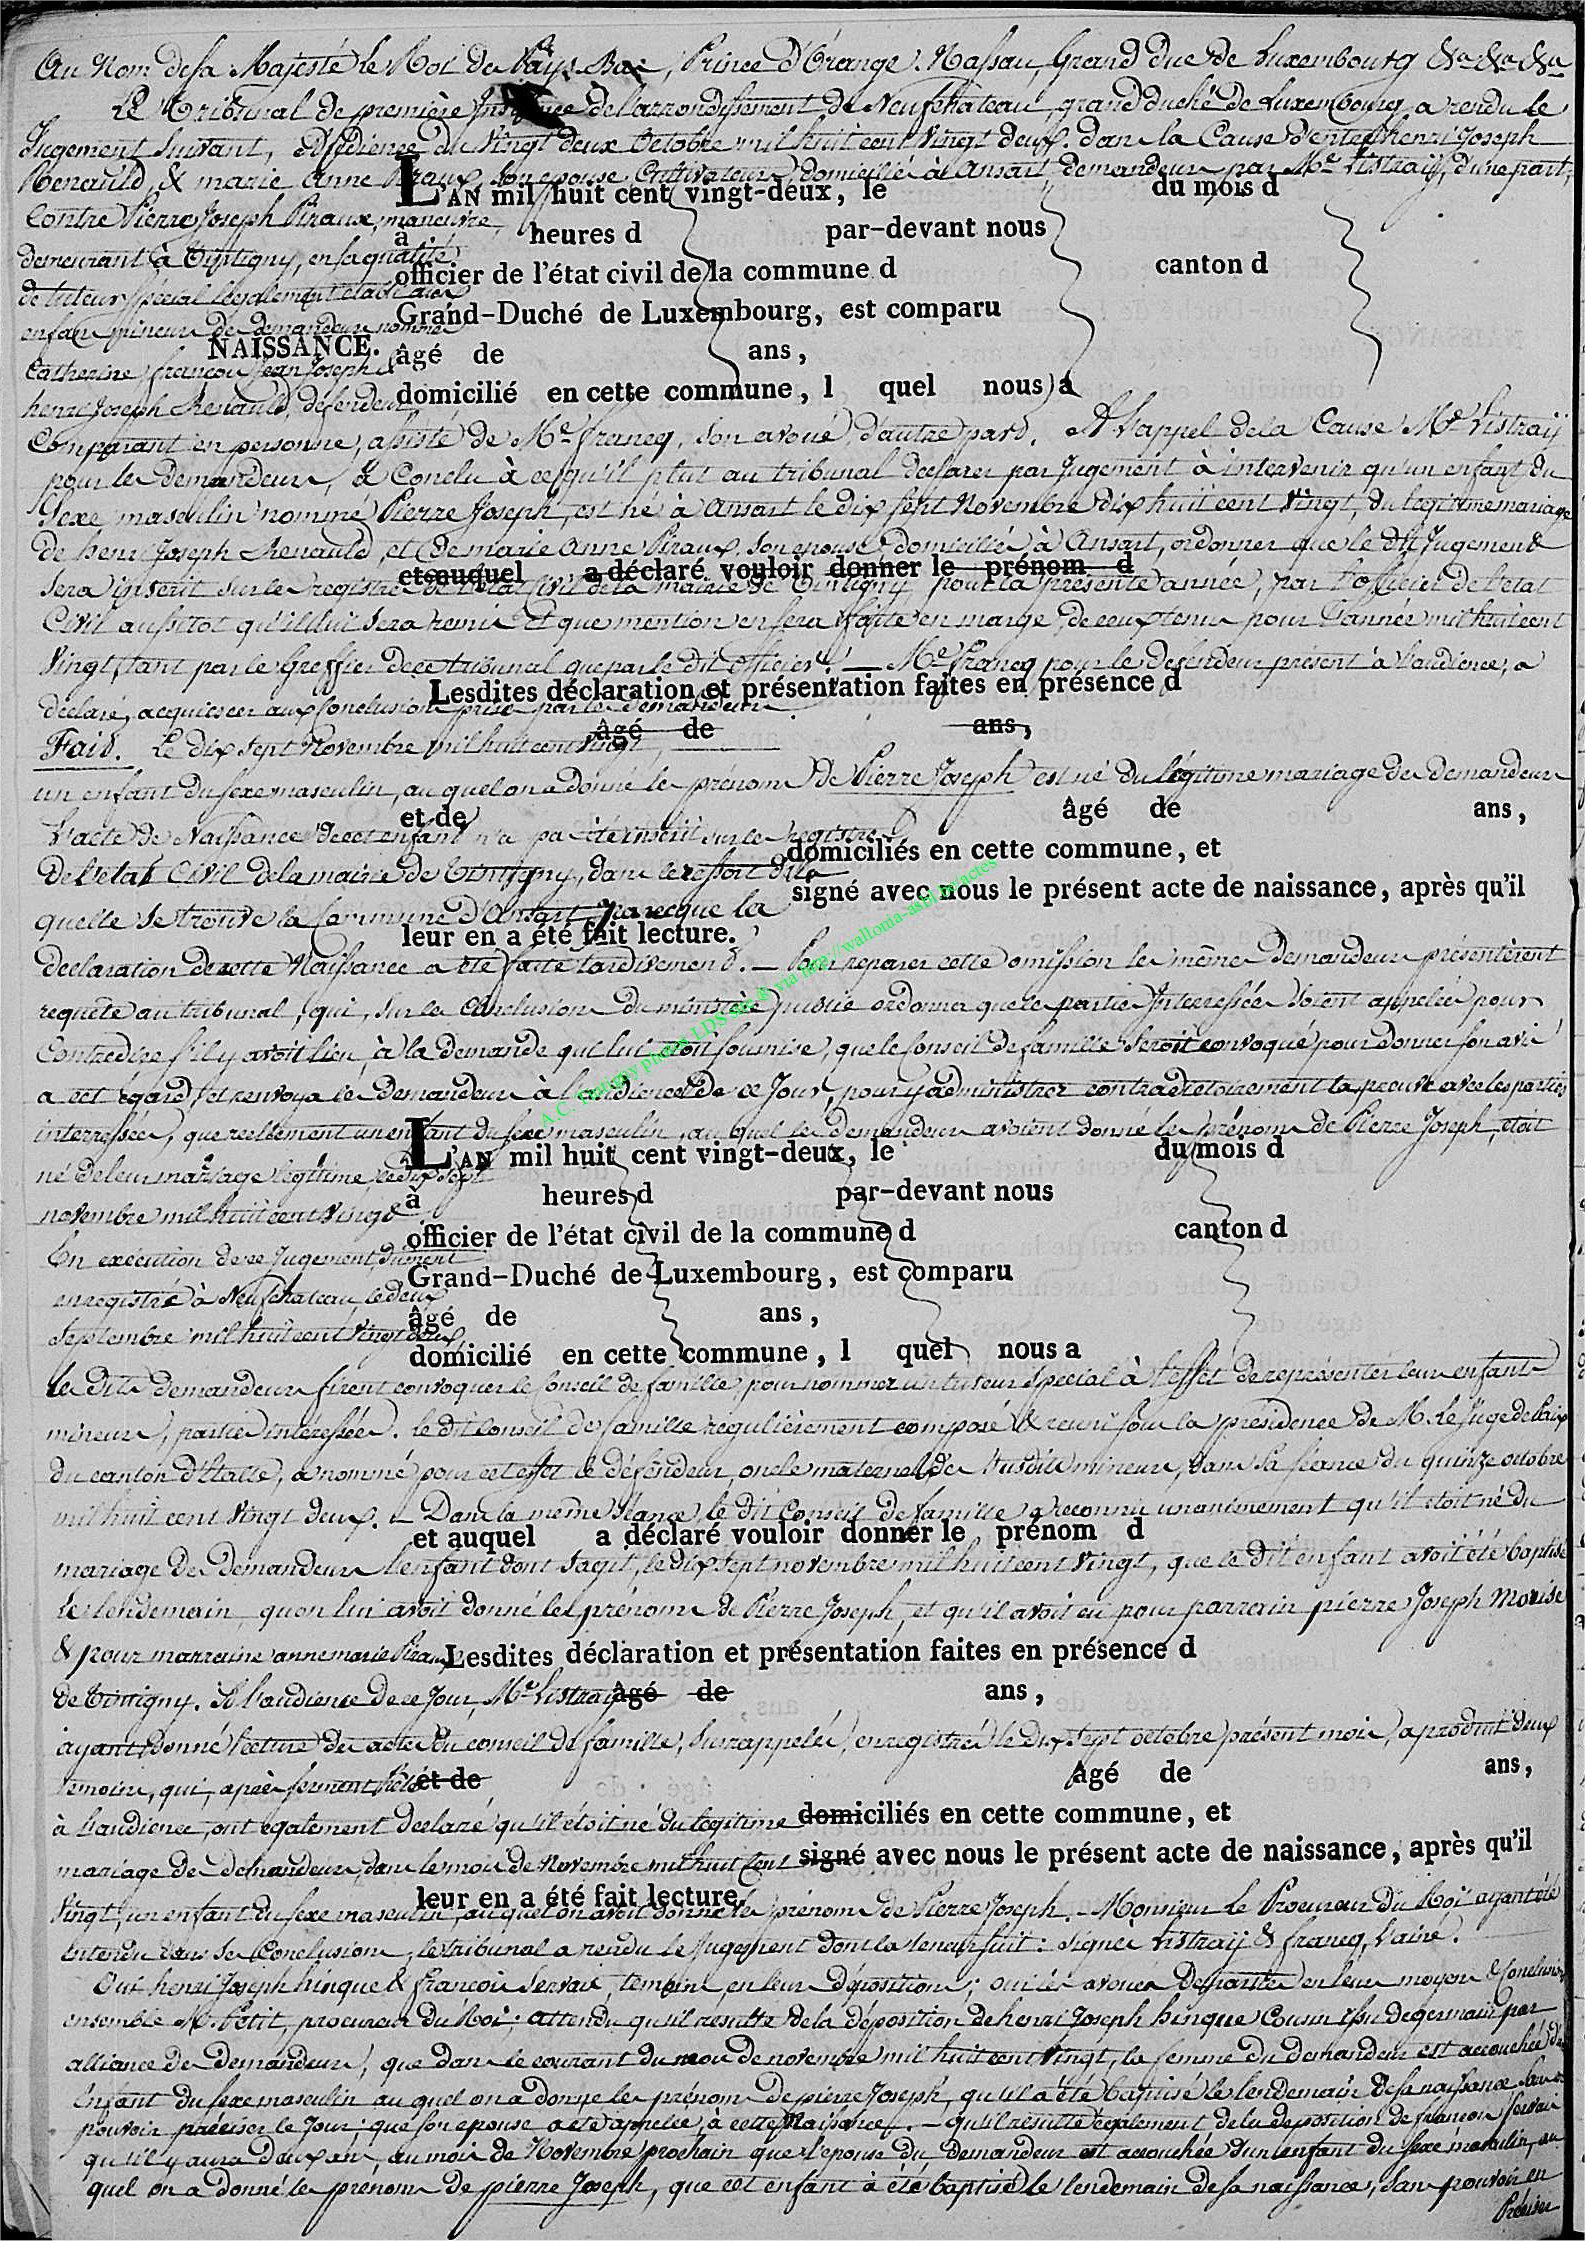 Au Nom de sa Majesté le Roi des Pays-Bas, Prince d'Orange Nassau, Grand duc de Luxembourg &a &a &a
Le Tribunal de première Instance de l'arrondissement de Neufchateau, grand duché de Luxembourg a rendu le
Jugement suivant, du vingt deux octobre mil huit cent vingt deux. dans la Cause d'entre henri Joseph
Renauld, & marie Anne Piraux, son epouse Cultivateurs, domiciliés à Ansart, demandeurs par Me Listraÿ, d'une part,
L'AN mil huit cent vingt-deux, le du mois d
Contre Pierre Joseph Piraux, manœuvre,
à heures d par-devant nous
demeurant à Tintigny, en sa qualité
officier de l'état civil de la commune d canton d
de tuteur spécial légalement établi aux
Grand-Duché de Luxembourg, est comparu
enfans mineurs des demandeurs nommés
NAISSANCE.
âgé de ans,
Catherine, françois, Jean Joseph &
domicilié en cette commune, l quel nous a
henri Joseph Renauld, defendeur
Comparant en personne, assisté de Me francq, son avoué d'autre part. A l'appel de la Cause Me Listraÿ
pour les demandeurs, a Conclu à ce qu'il plut au tribunal declarer par Jugement à intervenir qu'un enfant du
Sexe masculin nommé Pierre Joseph, est né à Ansart le dix sept Novembre dix huit cent vingt, du legitime mariage
de henri Joseph Renauld, et de marie Anne Piraux, son epouse, domiciliés à Ansart, ordonner que le dit Jugement
et auquel a déclaré vouloir donner le prénom d
sera inscrit sur le registre de l'état Civil de la mairie de Tintigny pour la présente année, par l'officier de l'etat
Civil aussitot qu'il lui sera remis et que mention en sera faite en marge de ceux tenus pour l'année mil huit cent
vingt, tant par le Greffier de ce tribunal que par le dit officier. — Me francq pour le defendeur présent à l'audience, a
Lesdites déclaration et présentation faites en présence d
déclaré, acquiescer aux Conclusions prises par les demandeurs
âgé de ans,
Fait. Le dix sept Novembre mil huit cent vingt,
un enfant du sexe masculin, au quel on a donné les prénoms de Pierre Joseph est né du légitime mariage des demandeurs
et de âgé de ans,
L'acte de Naissance de cet enfant n'a pas été inscrit sur le registre
domiciliés en cette commune, et
de l'etat Civil de la mairie de Tintigny, dans le ressort de la
signé avec nous le présent acte de naissance, après qu'il
quelle se trouve la Commune d'Ansart, parceque la
leur en a été fait lecture.
declaration de cette Naissance a été faite tardivement. — Pour reparer cette omission les mêmes demandeurs présentèrent
requête au tribunal, qui, sur les Conclusions du ministère public ordonna que les parties Interressées soient appelées pour
Contredire s'il y avoit lieu, à la demande qui lui étoit soumise, que le Conseil de famille seroit convoqué pour donner son avis
a cet égard, et renvoya les demandeurs à l'audience de ce Jour, pour y administrer contradictoirement la preuve avec les parties
interressées, que reellement un enfant du sexe masculin, au quel les demandeurs avoient donné les prénoms de Pierre Joseph, étoit
L'AN mil huit cent vingt-deux, le du mois d
né de leur mariage légitime, le dix sept
à heures d par-devant nous
novembre mil huit cent vingt
officier de l'état civil de la commune d canton d
En exécution de ce Jugement, dument
Grand-Duché de Luxembourg, est comparu
enregistré à Neufchateau, le deux
âgé de ans,
Septembre mil huit cent vingt deux,
domicilié en cette commune, l quel nous a
les dits demandeurs firent convoquer le Conseil de famille, pour nommer un tuteur spécial à l'effet de représenter leurs enfants
mineurs, parties intéressées. le dit Conseil de famille regulièrement composé & reuni sous la présidence de M. le Juge de Paix
du canton d'Etalle, a nommé pour cet effet le défendeur, oncle maternel des susdits mineurs, dans sa séance du quinze octobre
mil huit cent vingt deux. — Dans la même séance, le dit Conseil de famille a reconnu unanimement qu'il étoit né du
et auquel a déclaré vouloir donner le prénom d
mariage des demandeurs l'enfant dont s'agit, le dix sept novembre mil huit cent vingt, que le dit enfant avoit été baptisé
le lendemain, qu'on lui avoit donné les prénoms de Pierre Joseph, et qu'il avoit eu pour parrain pierre Joseph Morise
& pour marraine anne marie Piraux
Lesdites déclaration et présentation faites en présence d
de Tintigny. A l'audience de ce Jour, Me Listraÿ
âgé de ans,
ayant donné lecture des actes du conseil de famille, sus rappelés, enregistrés le dix sept octobre présent mois, a produit deux
temoins, qui, après serment prêté
et de âgé de ans,
à l'audience, ont egalement declaré qu'il étoit né du legitime
domiciliés en cette commune, et
mariage des demandeurs, dans le mois de Novembre mil huit Cent
signé avec nous le présent acte de naissance, après qu'il
leur en a été fait lecture.
vingt, un enfant du sexe masculin, au quel on avoit donné les prénoms de Pierre Joseph. — Monsieur le Procureur du Roi ayant été
entendu dans ses Conclusions, le tribunal a rendu le Jugement dont la teneur suit: signés Listraÿ & francq, l'ainé.
Oui henri Joseph hinque & françois servais, temoins, en leurs dépositions; oui les avoués des parties en leurs moyens & conclusions
ensemble M. Petit, procureur du Roi; attendu qu'il resulte de la déposition de henri Joseph hinque Cousin issu de germain par
alliance des demandeurs, que dans le courant du mois de novembre mil huit cent vingt, la femme du demandeur est accouchée d'un
enfant du sexe masculin au quel on a donné les prénoms de pierre Joseph, qu'il a été baptisé le lendemain de sa naissance sans
pouvoir préciser le Jour; que son epouse a été appelée à cette Naissance. — qu'il resulte egalement de la deposition de françois servais
qu'il y aura deux ans, au mois de Novembre prochain que l'epouse du demandeur est accouchée d'un enfant du sexe masculin, au
quel on a donné les prénoms de pierre Joseph, que cet enfant a été baptisé le lendemain de sa naissance, sans pouvoir en
Préciser
A.C. Tintigny photos LDS via http://wallonia-asbl.be/actes